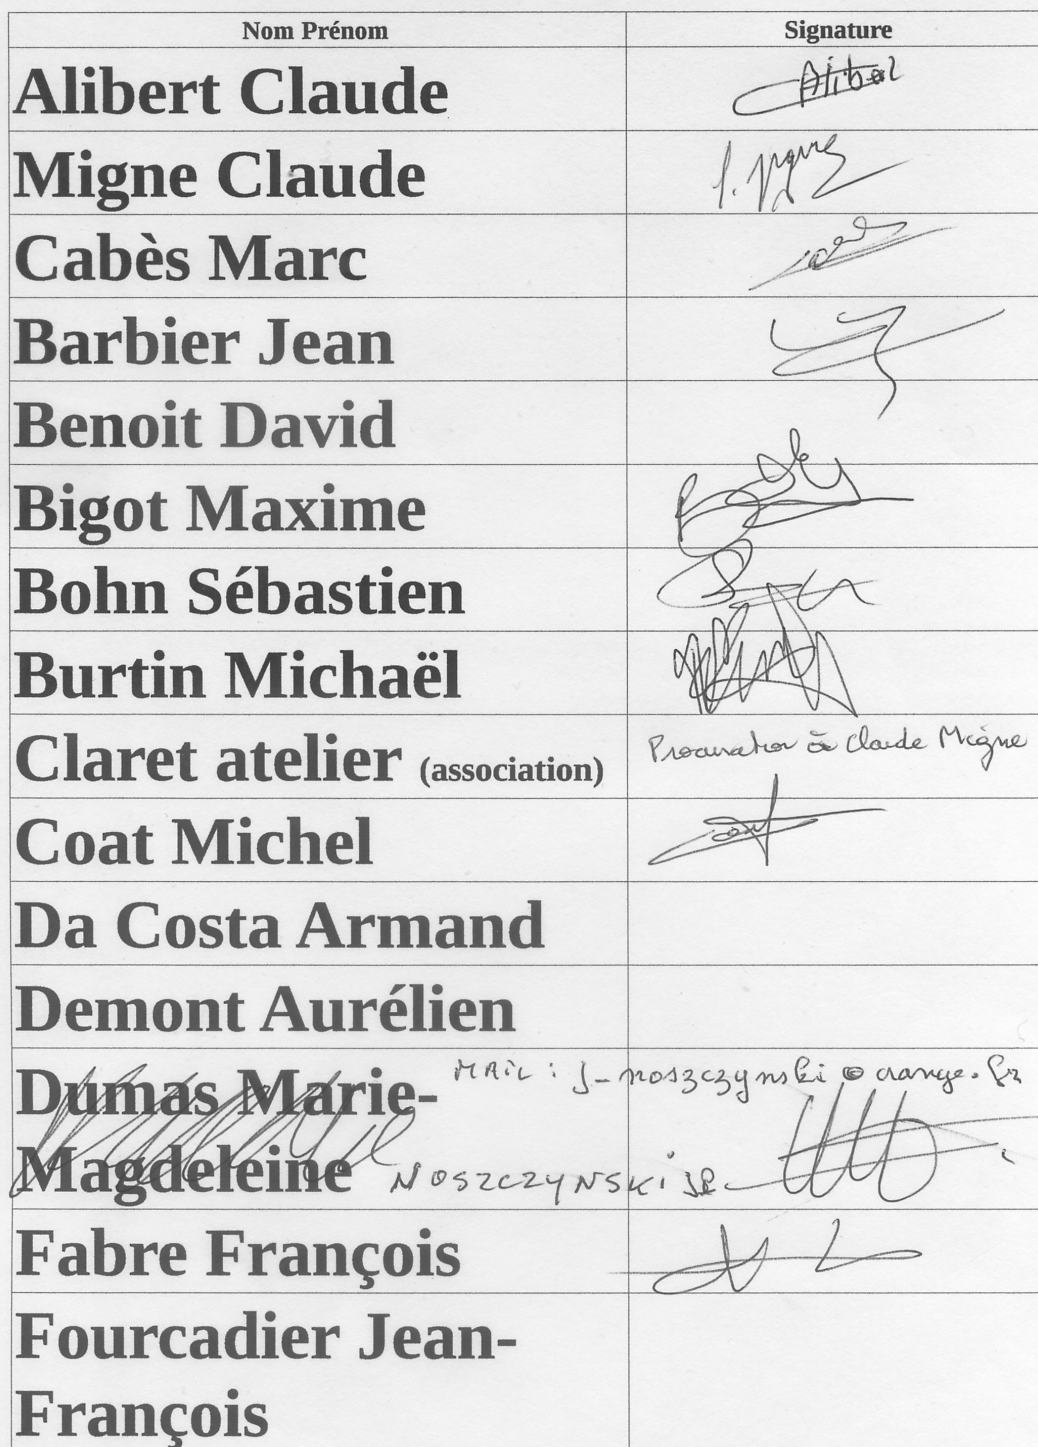 Nom Prénom Signature
Alibert Claude Alibert
Migne Claude
Cabès Marc
Barbier Jean
Benoit David
Bigot Maxime
Bohn Sébastien
Burtin Michaël
Claret atelier (association) Procuration à Claude Migne
Coat Michel
Da Costa Armand
Demont Aurélien
Dumas Marie- MAIL : J-noszczynski@orange.fr
Magdeleine NOSZCZYNSKI JP
Fabre François
Fourcadier Jean-
François